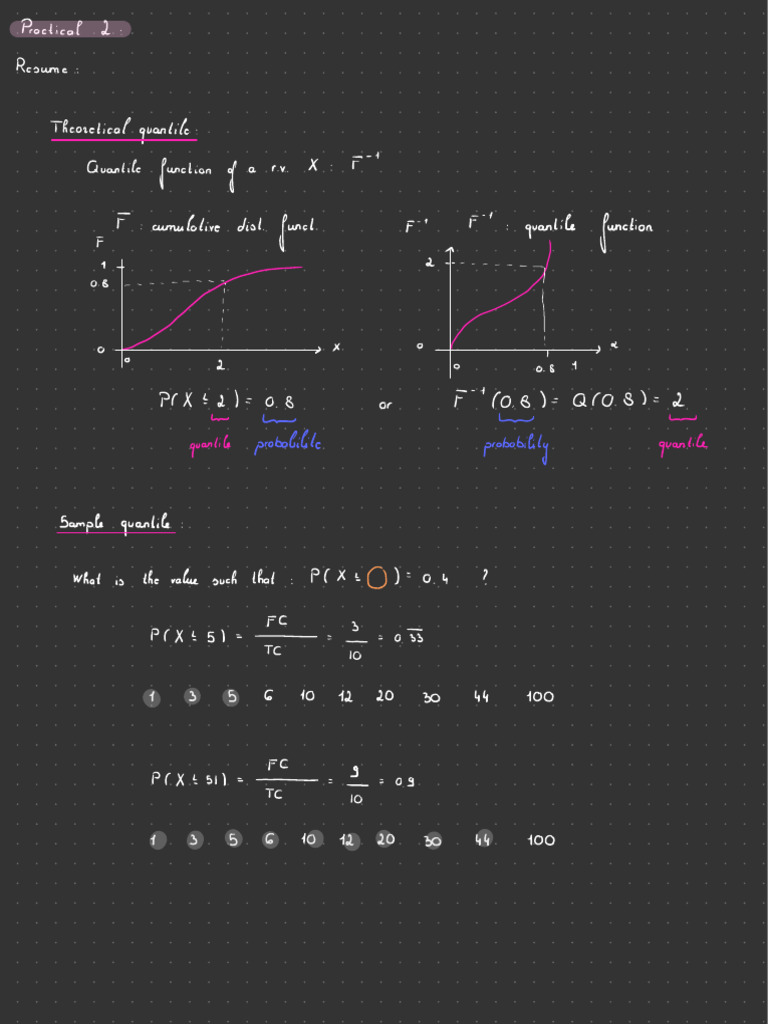 Practical 2 :
Resume :
Theoretical quantile :
Quantile function of a r.v. X : F⁻¹
F : cumulative dist. funct.
F⁻¹ : quantile function
F
1
0.8
0
0
2
X
F⁻¹
2
0
0
0.8
1
α
P(X ≤ 2) = 0.8 or F⁻¹(0.8) = Q(0.8) = 2
quantile probabilite probability quantile
Sample quantile :
What is the value such that : P(X ≤ ) = 0.4 ?
P(X ≤ 5) = FC/TC = 3/10 = 0.3̅3̅
1 3 5 6 10 12 20 30 44 100
P(X ≤ 51) = FC/TC = 9/10 = 0.9
1 3 5 6 10 12 20 30 44 100